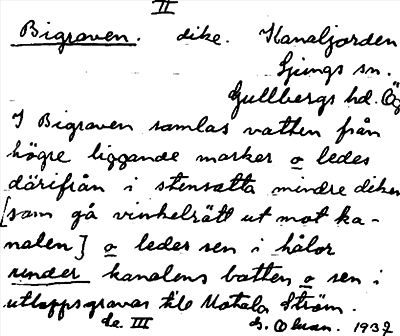 II
Bigraven. dike. Kanaljorden
Ljungs sn.
Gullbergs hd. Ög
I Bigraven samlas vatten från
högre liggande marker o ledes
därifrån i stensatta mindre diken
[som gå vinkelrätt ut mot ka-
nalen] o ledes sen i hålor
under kanalens botten o sen i
utloppsgravar till Motala Ström.
de. III
1937